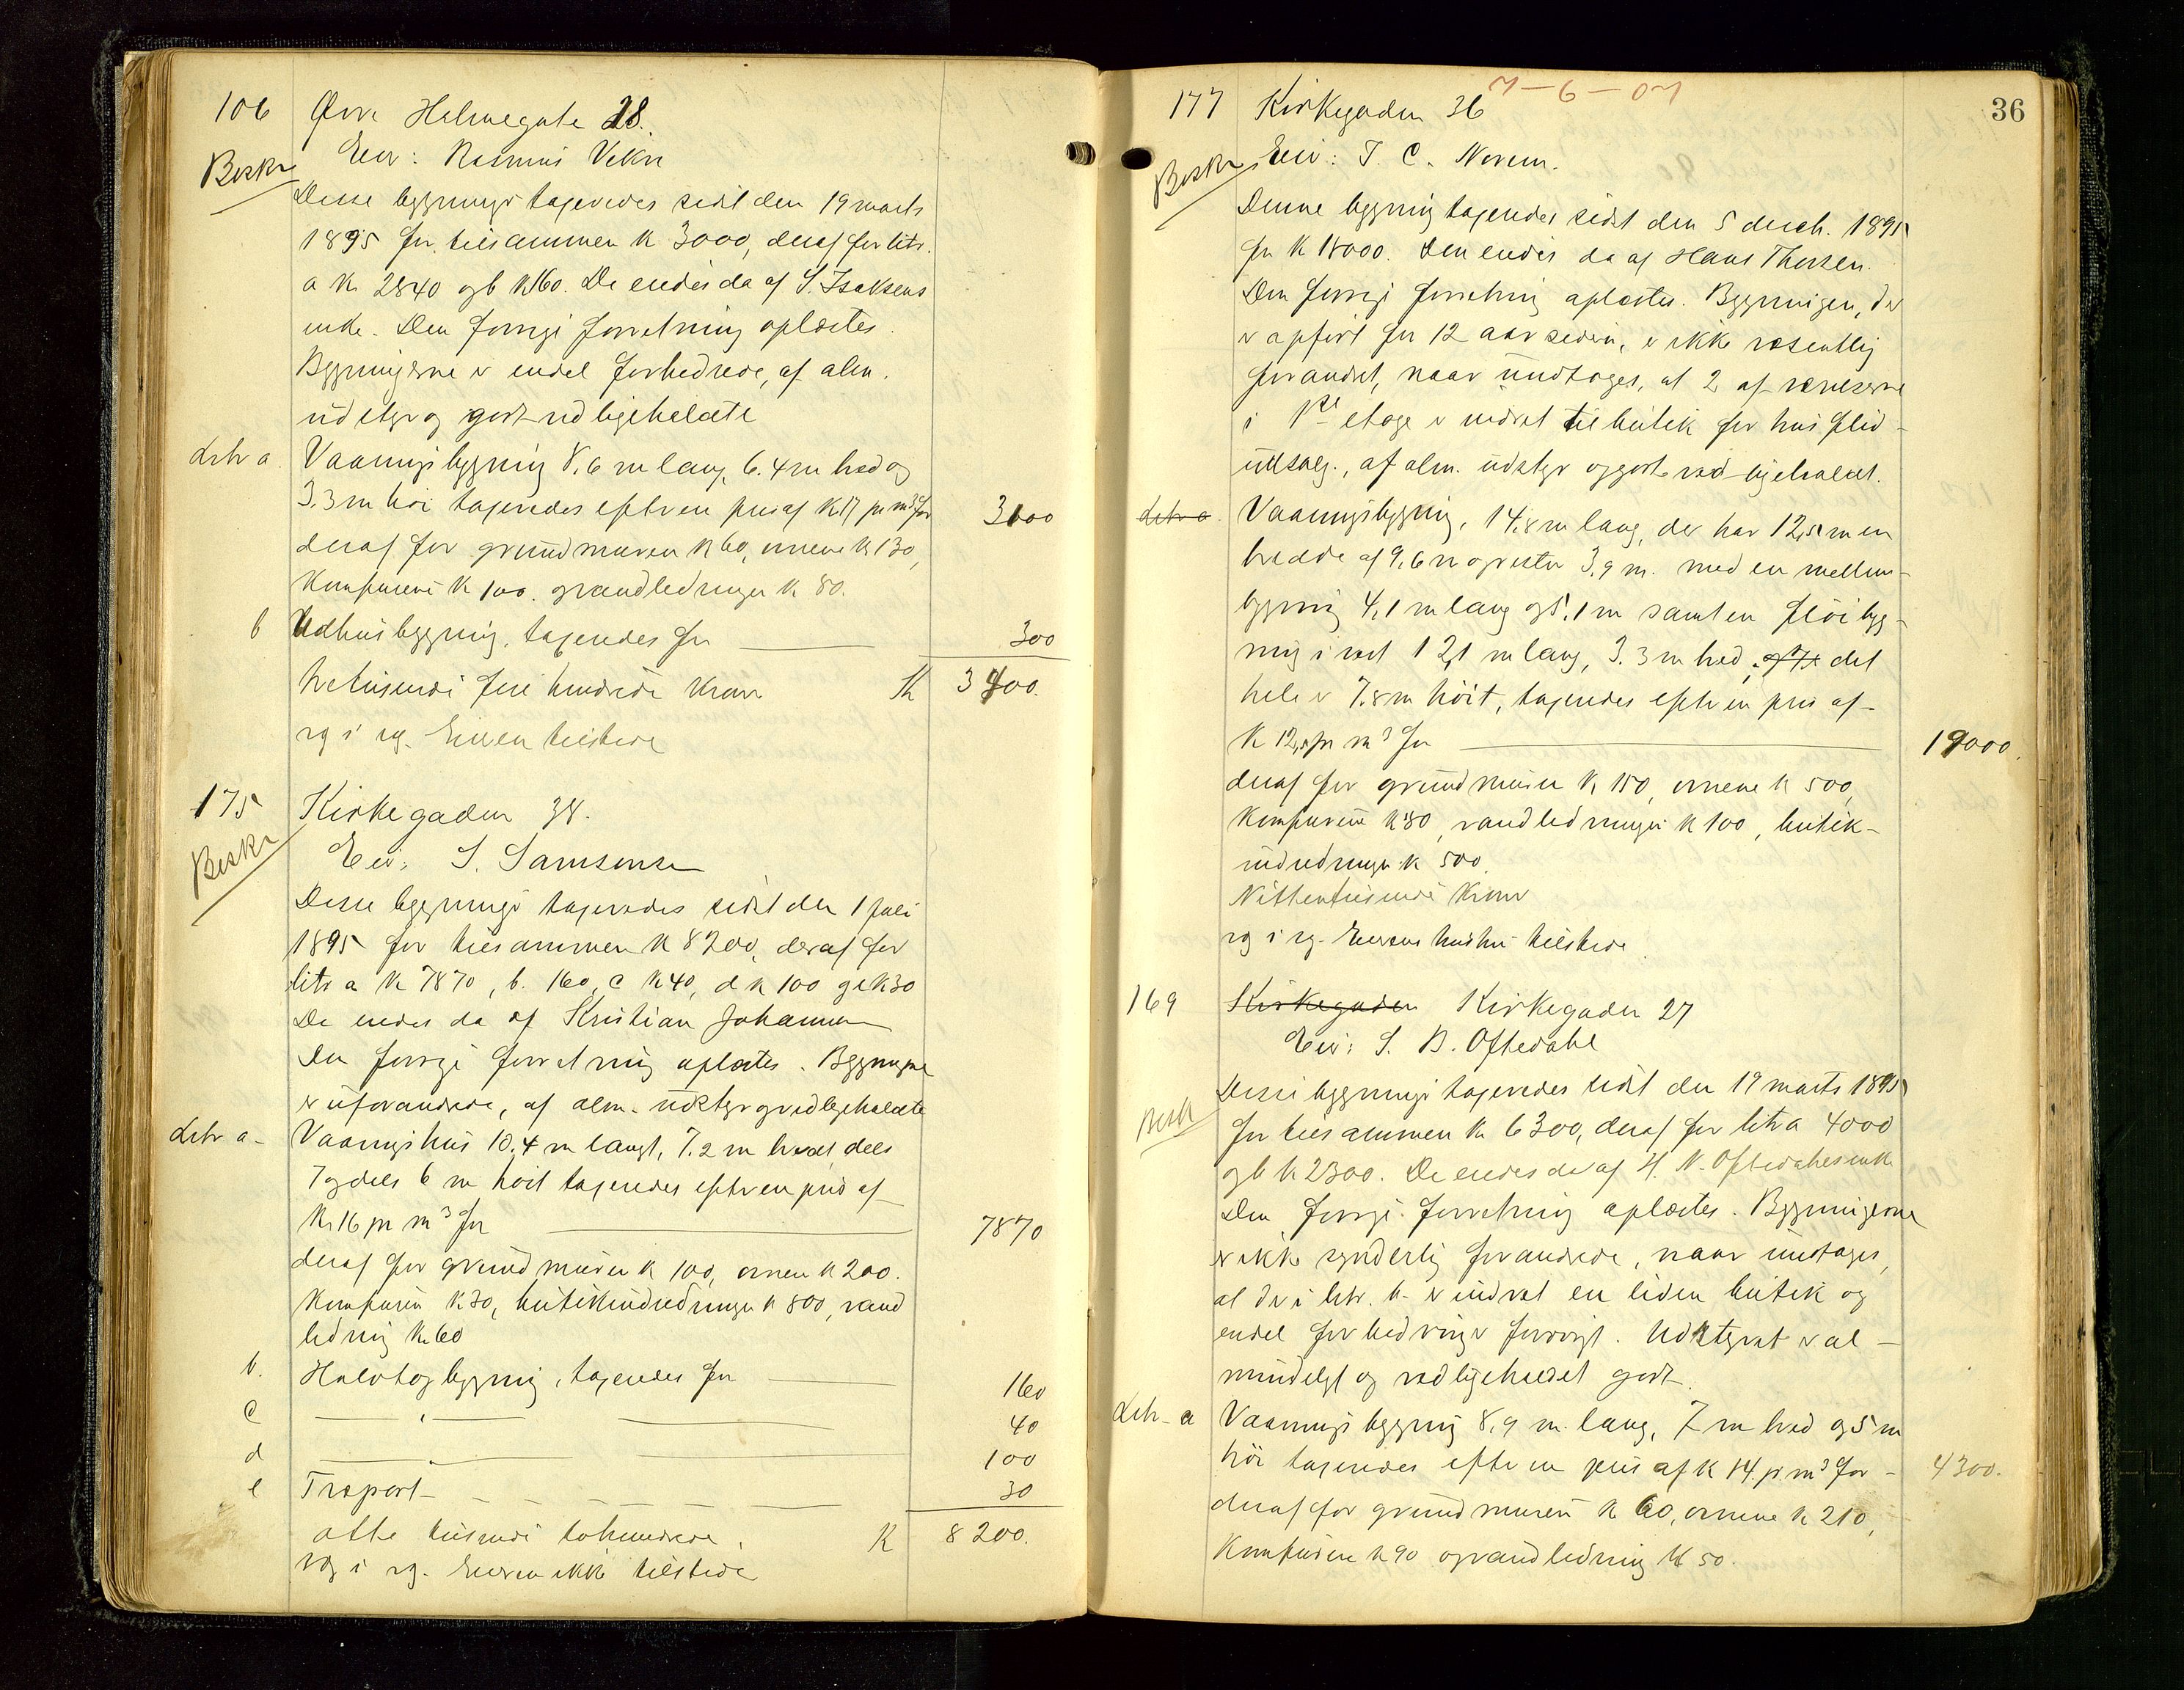 106 Øvre Holmegate 28.
Beskr Eier: Rasmus Vikse
Disse bygninger taxeredes sidst den 19 marts
1895 for tilsammen K 3000, deraf for litr.
a K 2840 og b K 160. De eiedes da af S. Isaksens
enke. Den forrige forretning oplæstes.
Bygningerne er endel forbedrede, af alm.
udstyr og godt vedligeholdte
Litr a. Vaaningsbygning 8,6 m lang, 6.4 m bred og
3.3 m høi taxeredes efter en pris af K 17 pr m³ for 3100
deraf for grundmuren K 60, ovnene K 130,
Komfurene K 100. vandledningen K 80.
b Udhusbygning, taxeredes for 300
tretusende fire hundrede Kroner K 3400.
r og i rg. Eieren tilstede
175 Kirkegaden 38.
Beskr Eier: S. Samsonsen
Disse bygninger taxeredes sidst den 1 juli
1895 for tilsammen K 8200, deraf for
litr a K 7870, b. 160, c K 40, d K 100 og e K 30
De eiedes da af Kristian Johannesen
Den forrige forretning oplæstes. Bygningerne
er uforandrede, af alm. udstyr og vedligeholdte
Litr a- Vaaningshus 10,4 m langt, 7.2 m bredt, dels
7 og dels 6 m høit taxeredes efter en pris af
Kr 16 pr m³ for 7870
deraf for grundmuren K 100, ovnen K 200.
Komfuren K 30, butikindredningen K 800, vand
ledning K 60
b. Halvtagbygning, taxeredes for 160
c 40
d 100
e Traport 30
otte tusende tohundrede. K 8200.
r og i rg. Eieren ikke tilstede
36
7-6-07
177 Kirkegaden 36
Beskr Eier: T. C. Norem.
Denne bygning taxeredes sidst den 5 decb. 1895
for K 18000. Den eiedes da af Hans Thorsen.
Den forrige forretning oplæstes. Bygningen, der
er opført for 12 aar siden, er ikke væsentlig
forandret, naar undtages, at 2 af værelserne
i 1ste etage er indret til butik for husflid-
utsalg., af alm. udstyr og godt vedligeholdt.
Litr a. Vaaningsbygning, 14,8 m lang, der har 12,5 m en
bredde af 9,6 m og resten 3,9 m. med en mellem-
bygning 4,1 m lang og 5,1 m samt en fløibyg-
ning i vest 12,1 m lang, 3.3 m bred, det
hele er 7.8 m høit, taxeredes efter en pris af
K 12,5 pr m³ for 19000.
deraf for grundmuren K 150, ovnene K 500,
Komfurene K 80, vandledningen K 100, butik-
indredningen K 500.
Nittentusende Kroner
r og i rg. Eierens hustru tilstede.
169 Kirkegaden Kirkegaden 27
Eier: S. B. Oftedahl
Beskr Disse bygninger taxeredes sidst den 19 marts 1895
for tilsammen K 6300, deraf for litr a 4000
og b K 2300. De eiedes da af H. N. Oftedahls enke
Den forrige forretning oplæstes. Bygningerne
er ikke synderlig forandrede, naar undtages,
at der i litr. b- er indret en liden butik og
endel forbedringer forøvrigt. Udstyret er al-
mindeligt og vedligeholdet godt.
Litr- a Vaaningsbygning 8,9 m. lang, 7 m bred og 5 m
høi taxeredes efter en pris af K 14. pr m³ for - 4300.
deraf for grundmuren K 60, ovnene K 210,
Komfuren K 90 og vandledning K 50.